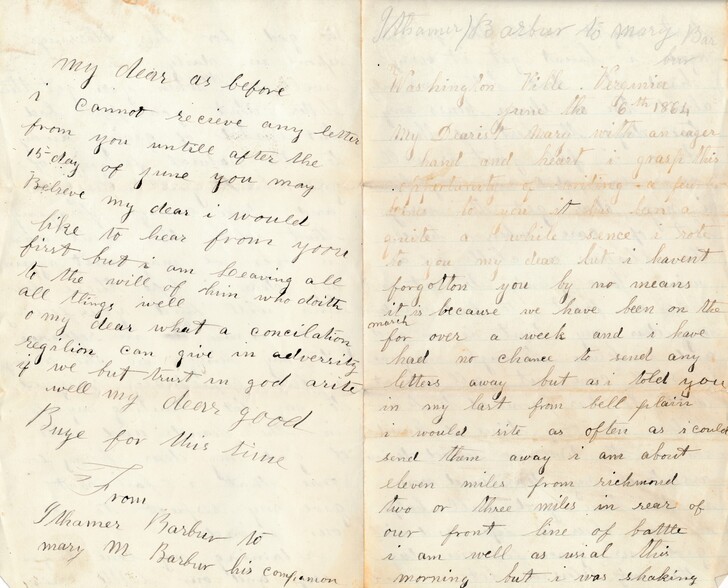 my dear as before
i cannot recieve any letter
from you untill after the
15 day of june you may
Believe my dear i would
like to hear from yoou
first but i am leaving all
to the will of him who doith
all things well
o my dear what a concilation
regilion can give in adversity
if we but trust in god arite
well my dear good
Buye for this time
From
Ithamer Barbur to
mary M Barbur his companion
Ithamer) Barbur to mary Bar
bur
Washington Ville Verginia
june the 6th 1864
My Dearist mary with an eager
hand and heart i grasp this
oppertunity of writing a few
lines to you it has ban
quite a while sence i rote
to you my dear but i havent
forgotton you by no means
it is because we have been on the
march
for over a week and i have
had no chance to send any
letters away but as i told you
in my last from bell plain
i would rite as often as i could
send them away i am about
eleven miles from richmond
two or three miles in rear of
our front line of battle
i am well as usial this
morning but i was shaking